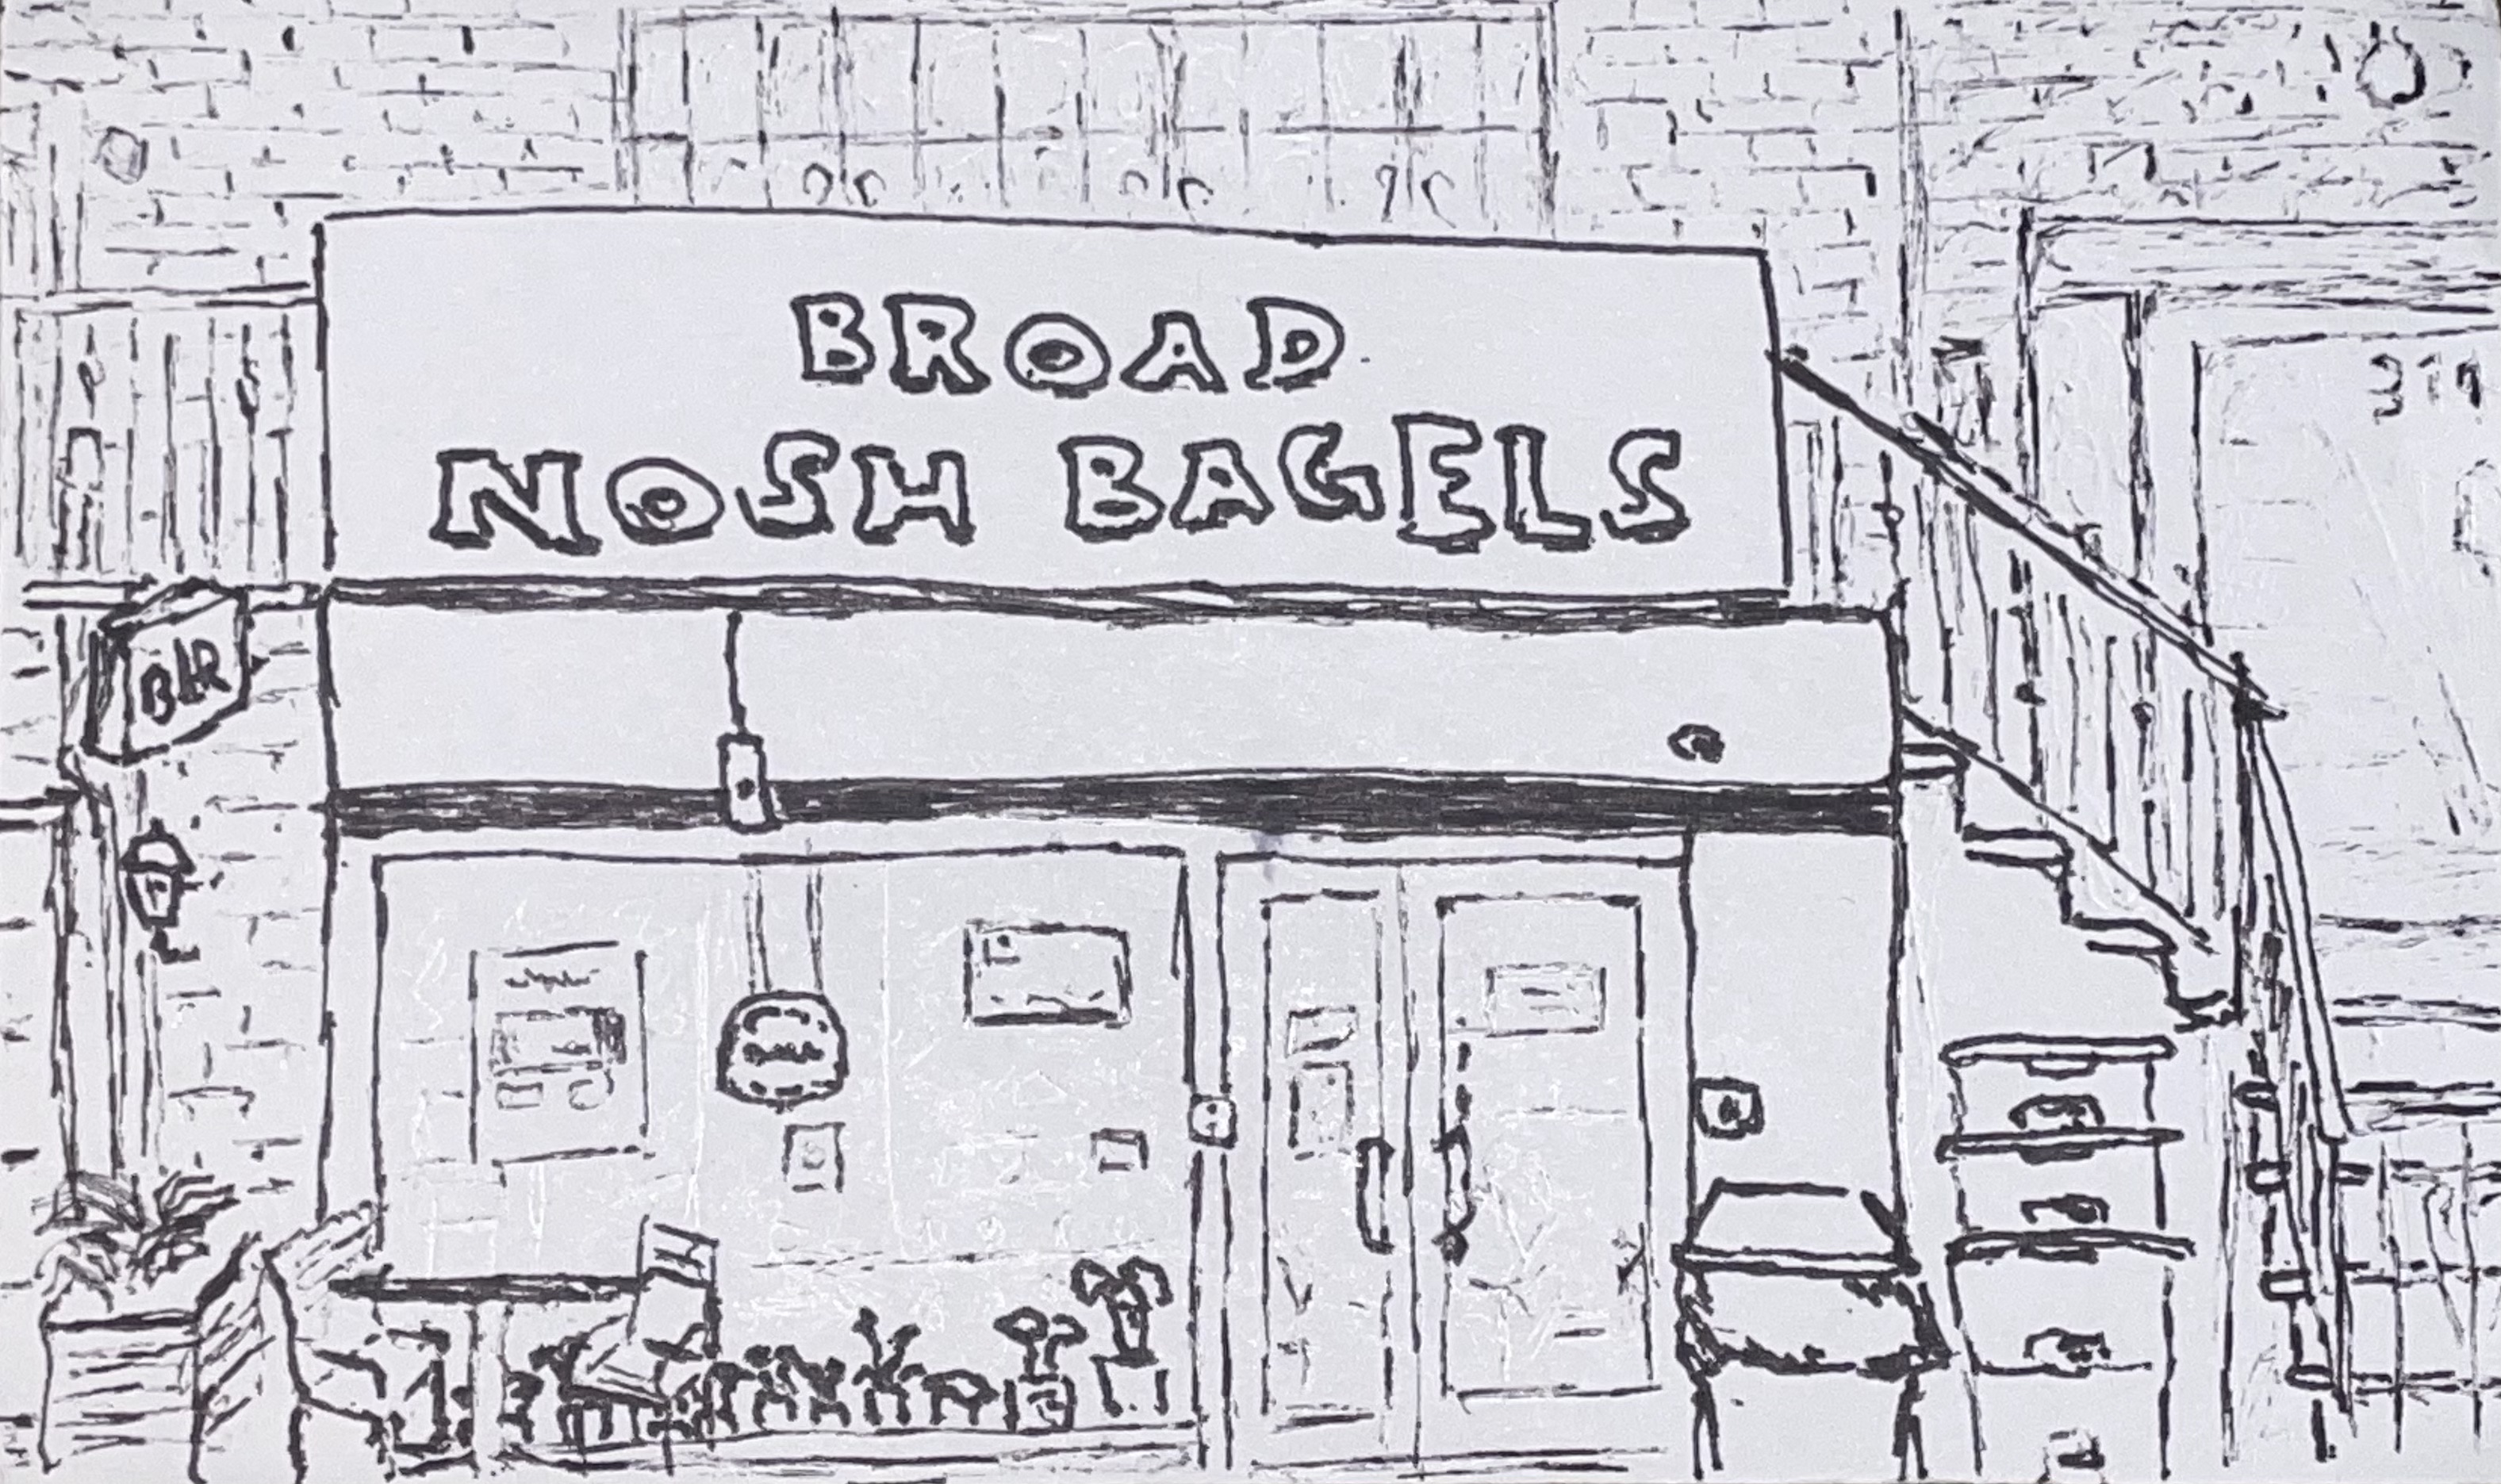 BROAD
NOSH BAGELS
BAR